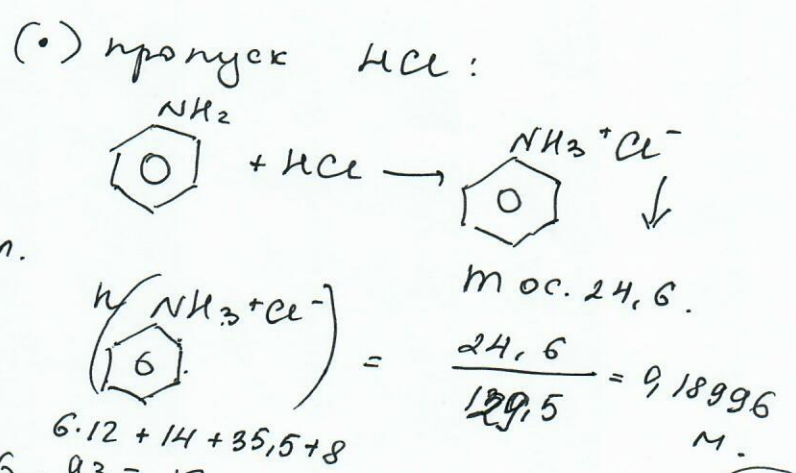 (•) пропуск HCl :
NH2
+ HCl → NH3 + Cl −
↓
m ос. 24,6.
n ( NH3 + Cl − ) = 24,6 / 129,5 = 0,18996 м.
6·12 + 14 + 35,5 + 8